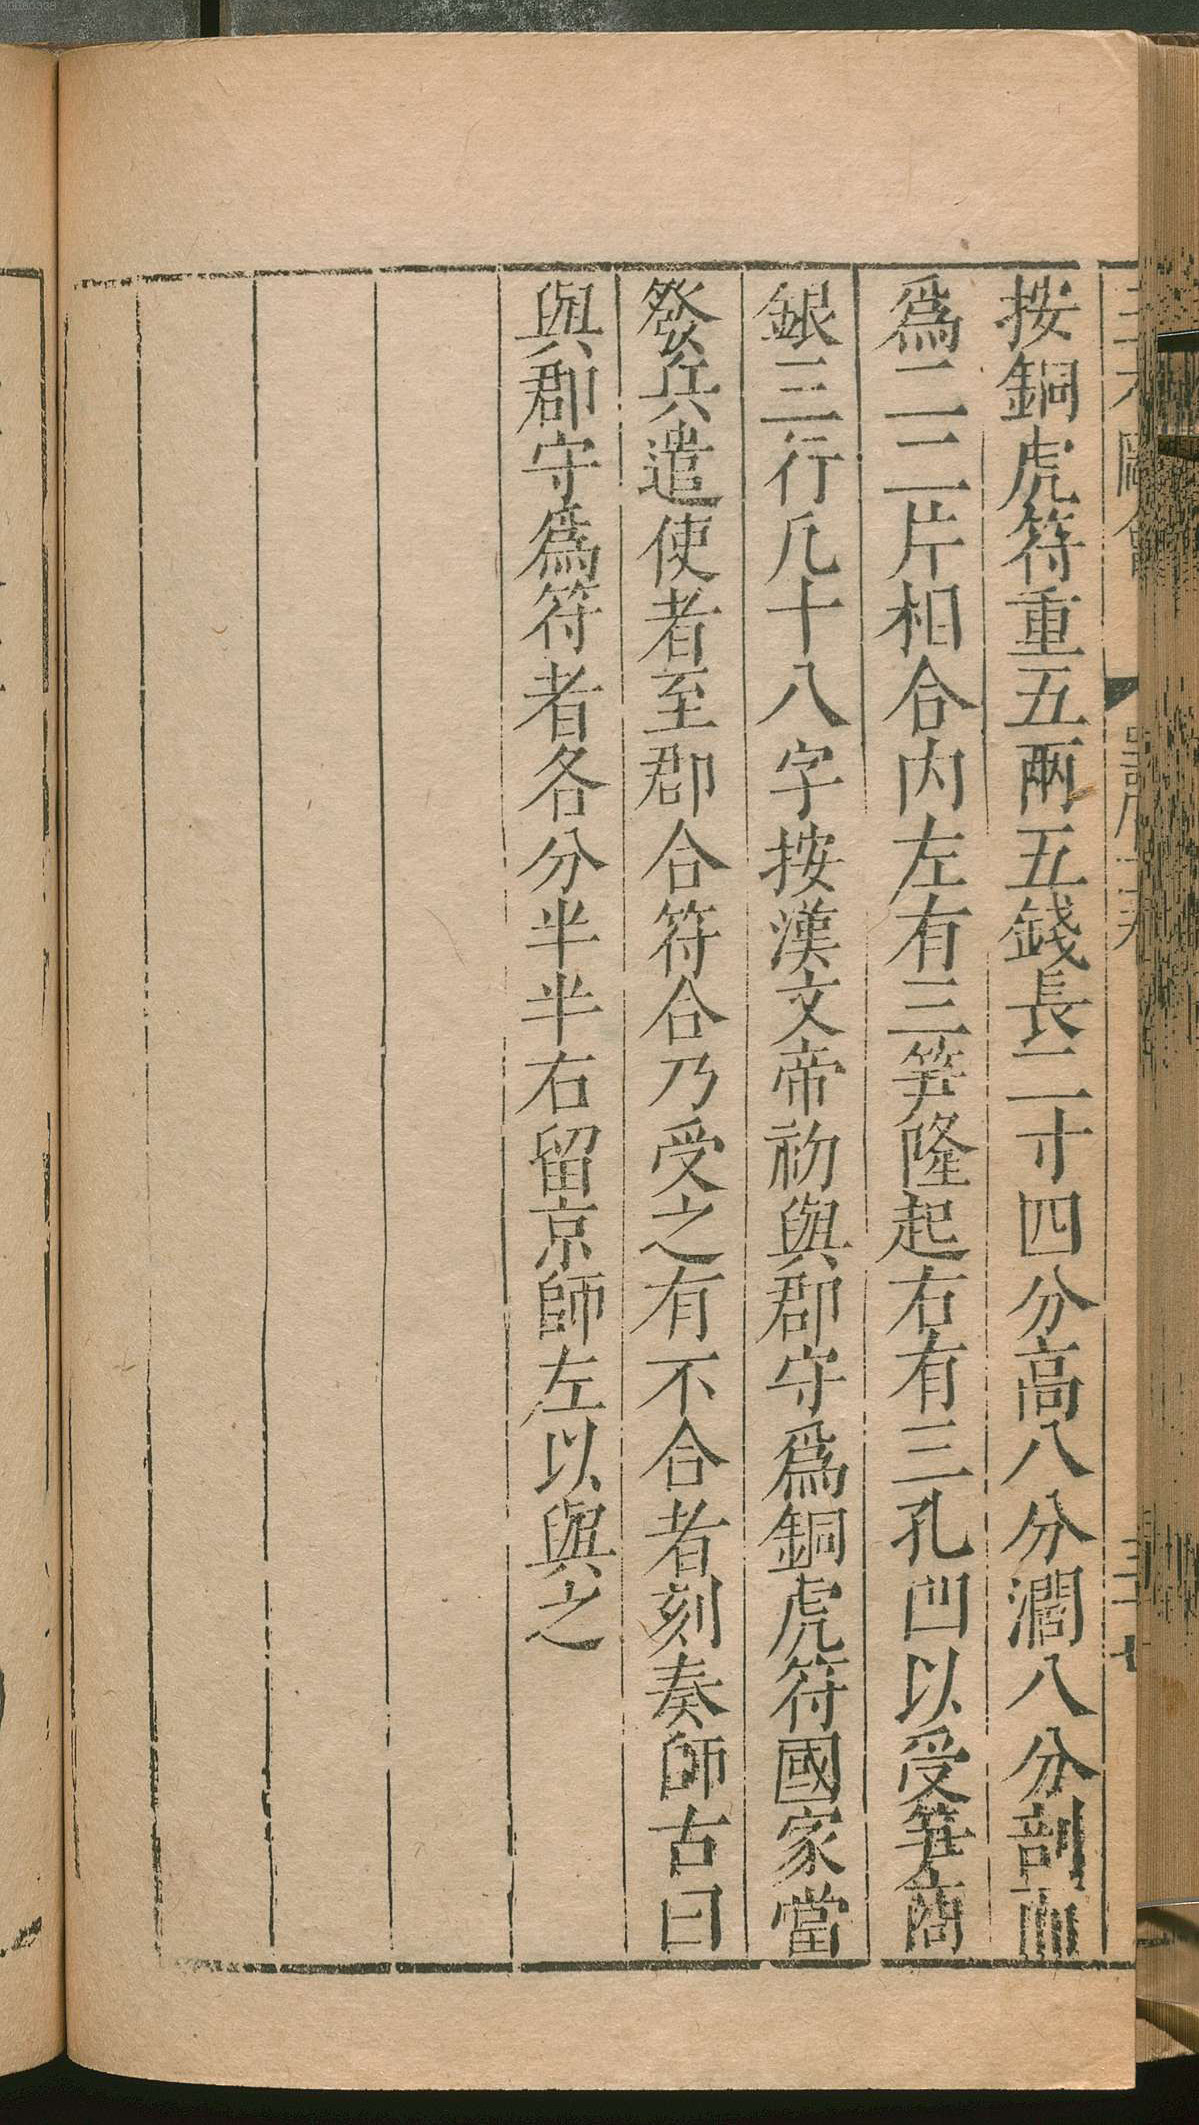 按銅虎符重五兩五錢長二寸四分高八分濶八分剖而
爲二二片相合内左有三笋隆起右有三孔凹以受笋商
銀三行凡十八字按漢文帝初與郡守爲銅虎符國家當
發兵遣使者至郡合符合乃受之有不合者刻奏師古曰
與郡守爲符者各分半半右留京師左以與之
00080338